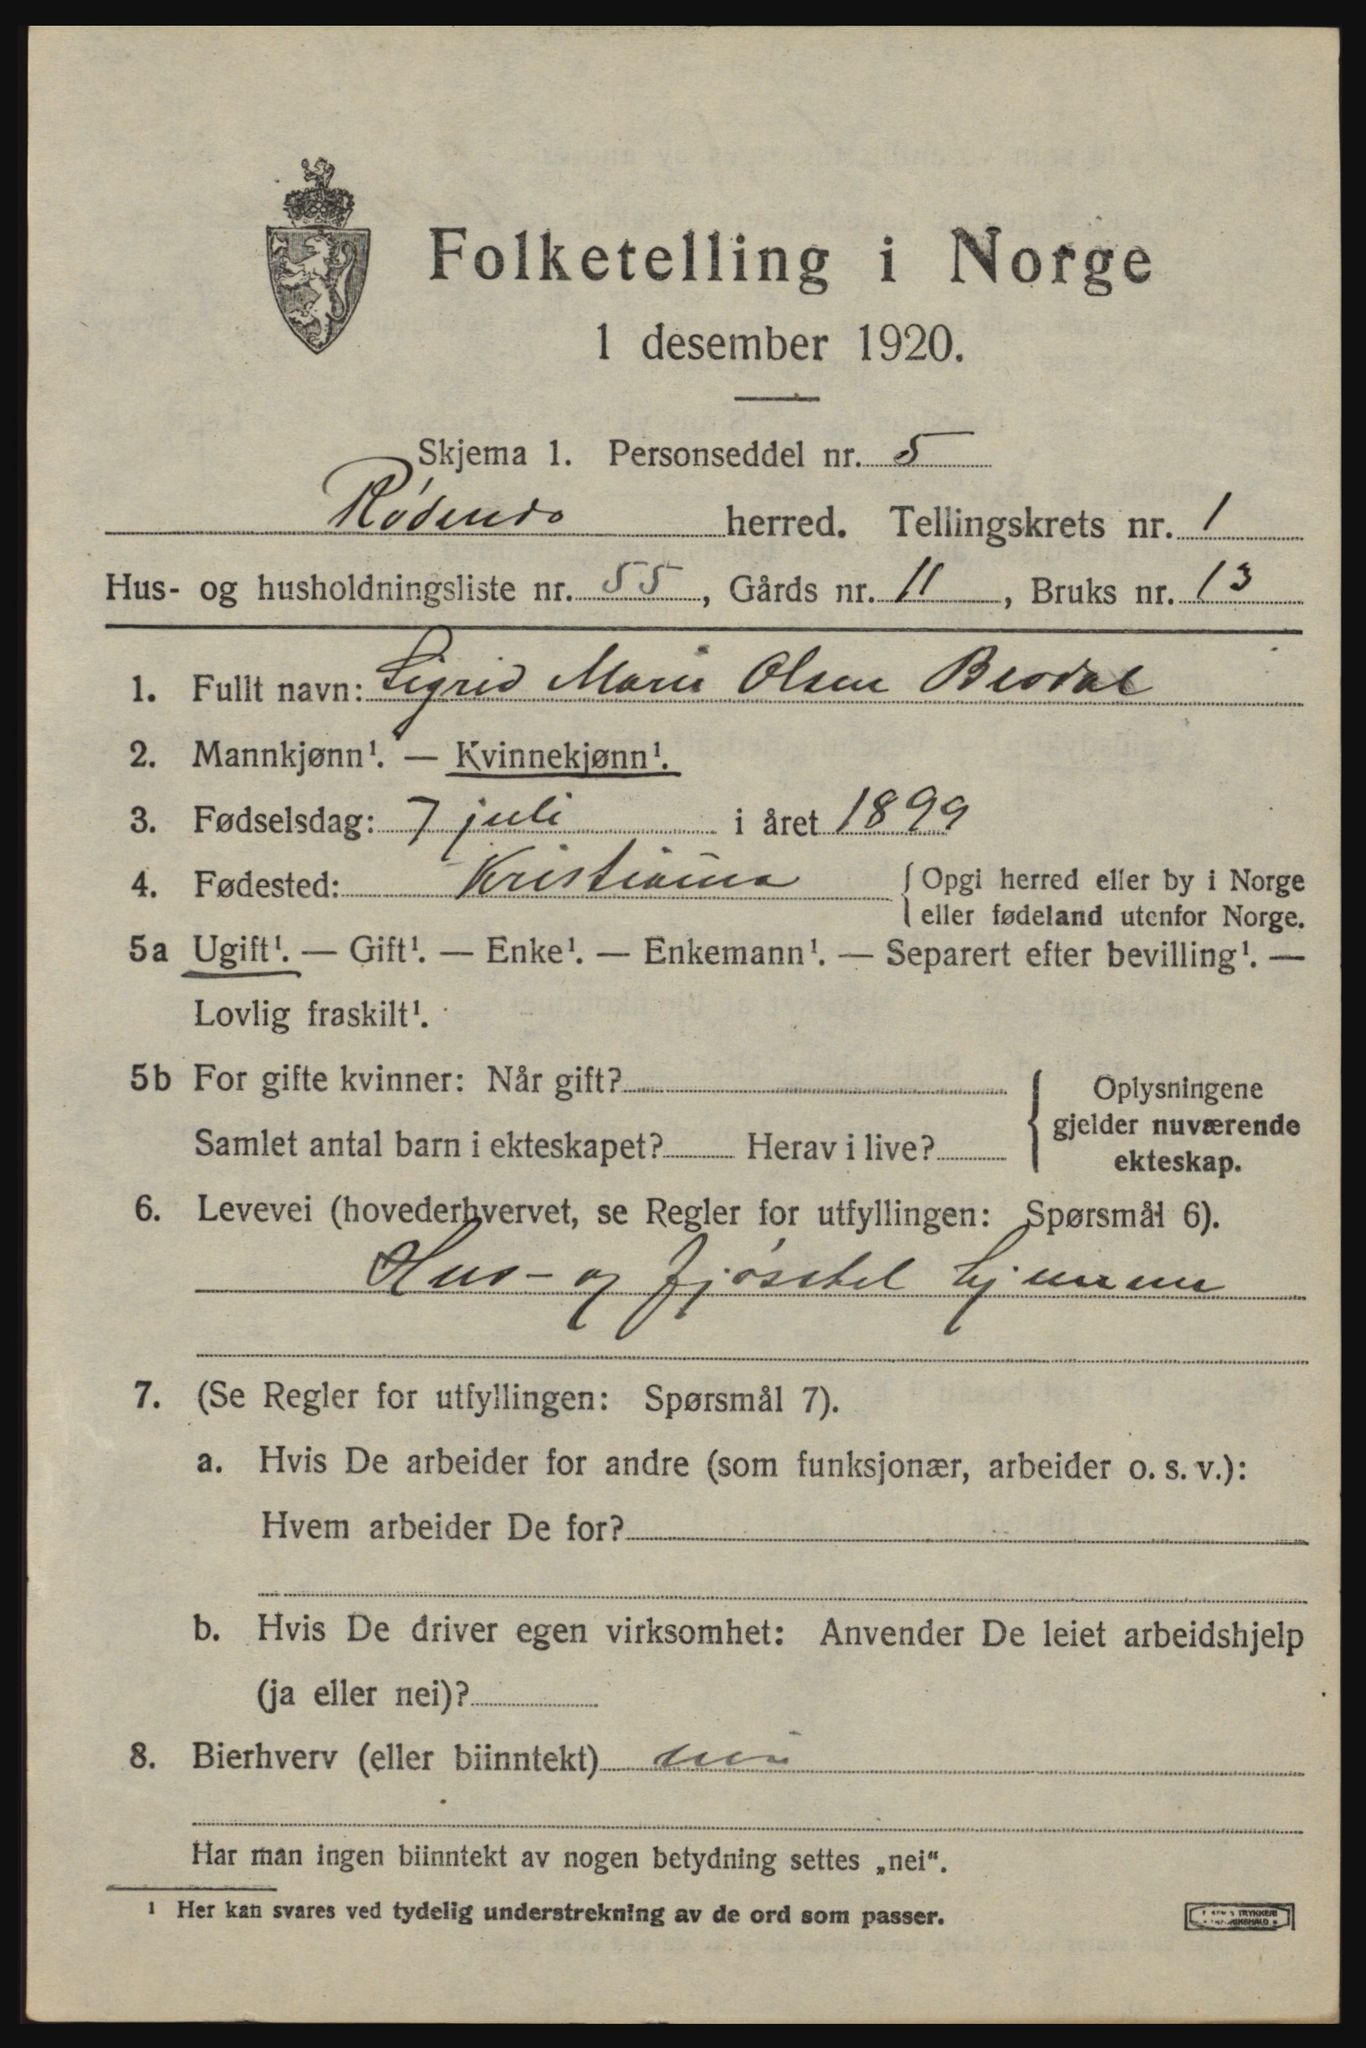 Folketelling i Norge
1 desember 1920.
Skjema 1. Personseddel nr. 5
Rødenes herred. Tellingskrets nr. 1
Hus- og husholdningsliste nr. 55, Gårds nr. 11, Bruks nr. 13
1. Fullt navn: Sigrid Marie Olsen
2. Mannkjønn¹. — Kvinnekjønn¹.
3. Fødselsdag: 7 juli i året 1899
4. Fødested: Kristiania { Opgi herred eller by i Norge
eller fødeland utenfor Norge.
5a Ugift¹. — Gift¹. — Enke¹. — Enkemann¹. — Separert efter bevilling¹. —
Lovlig fraskilt¹.
5b For gifte kvinner: Når gift?
Samlet antal barn i ekteskapet? Herav i live?
{ Oplysningene
gjelder nuværende
ekteskap.
6. Levevei (hovederhvervet, se Regler for utfyllingen: Spørsmål 6).
Hus- og fjøsstel hjemme
7. (Se Regler for utfyllingen: Spørsmål 7).
a. Hvis De arbeider for andre (som funksjonær, arbeider o. s. v.):
Hvem arbeider De for?
b. Hvis De driver egen virksomhet: Anvender De leiet arbeidshjelp
(ja eller nei)?
8. Bierhverv (eller biinntekt) nei
Har man ingen biinntekt av nogen betydning settes „nei“.
¹ Her kan svares ved tydelig understrekning av de ord som passer.